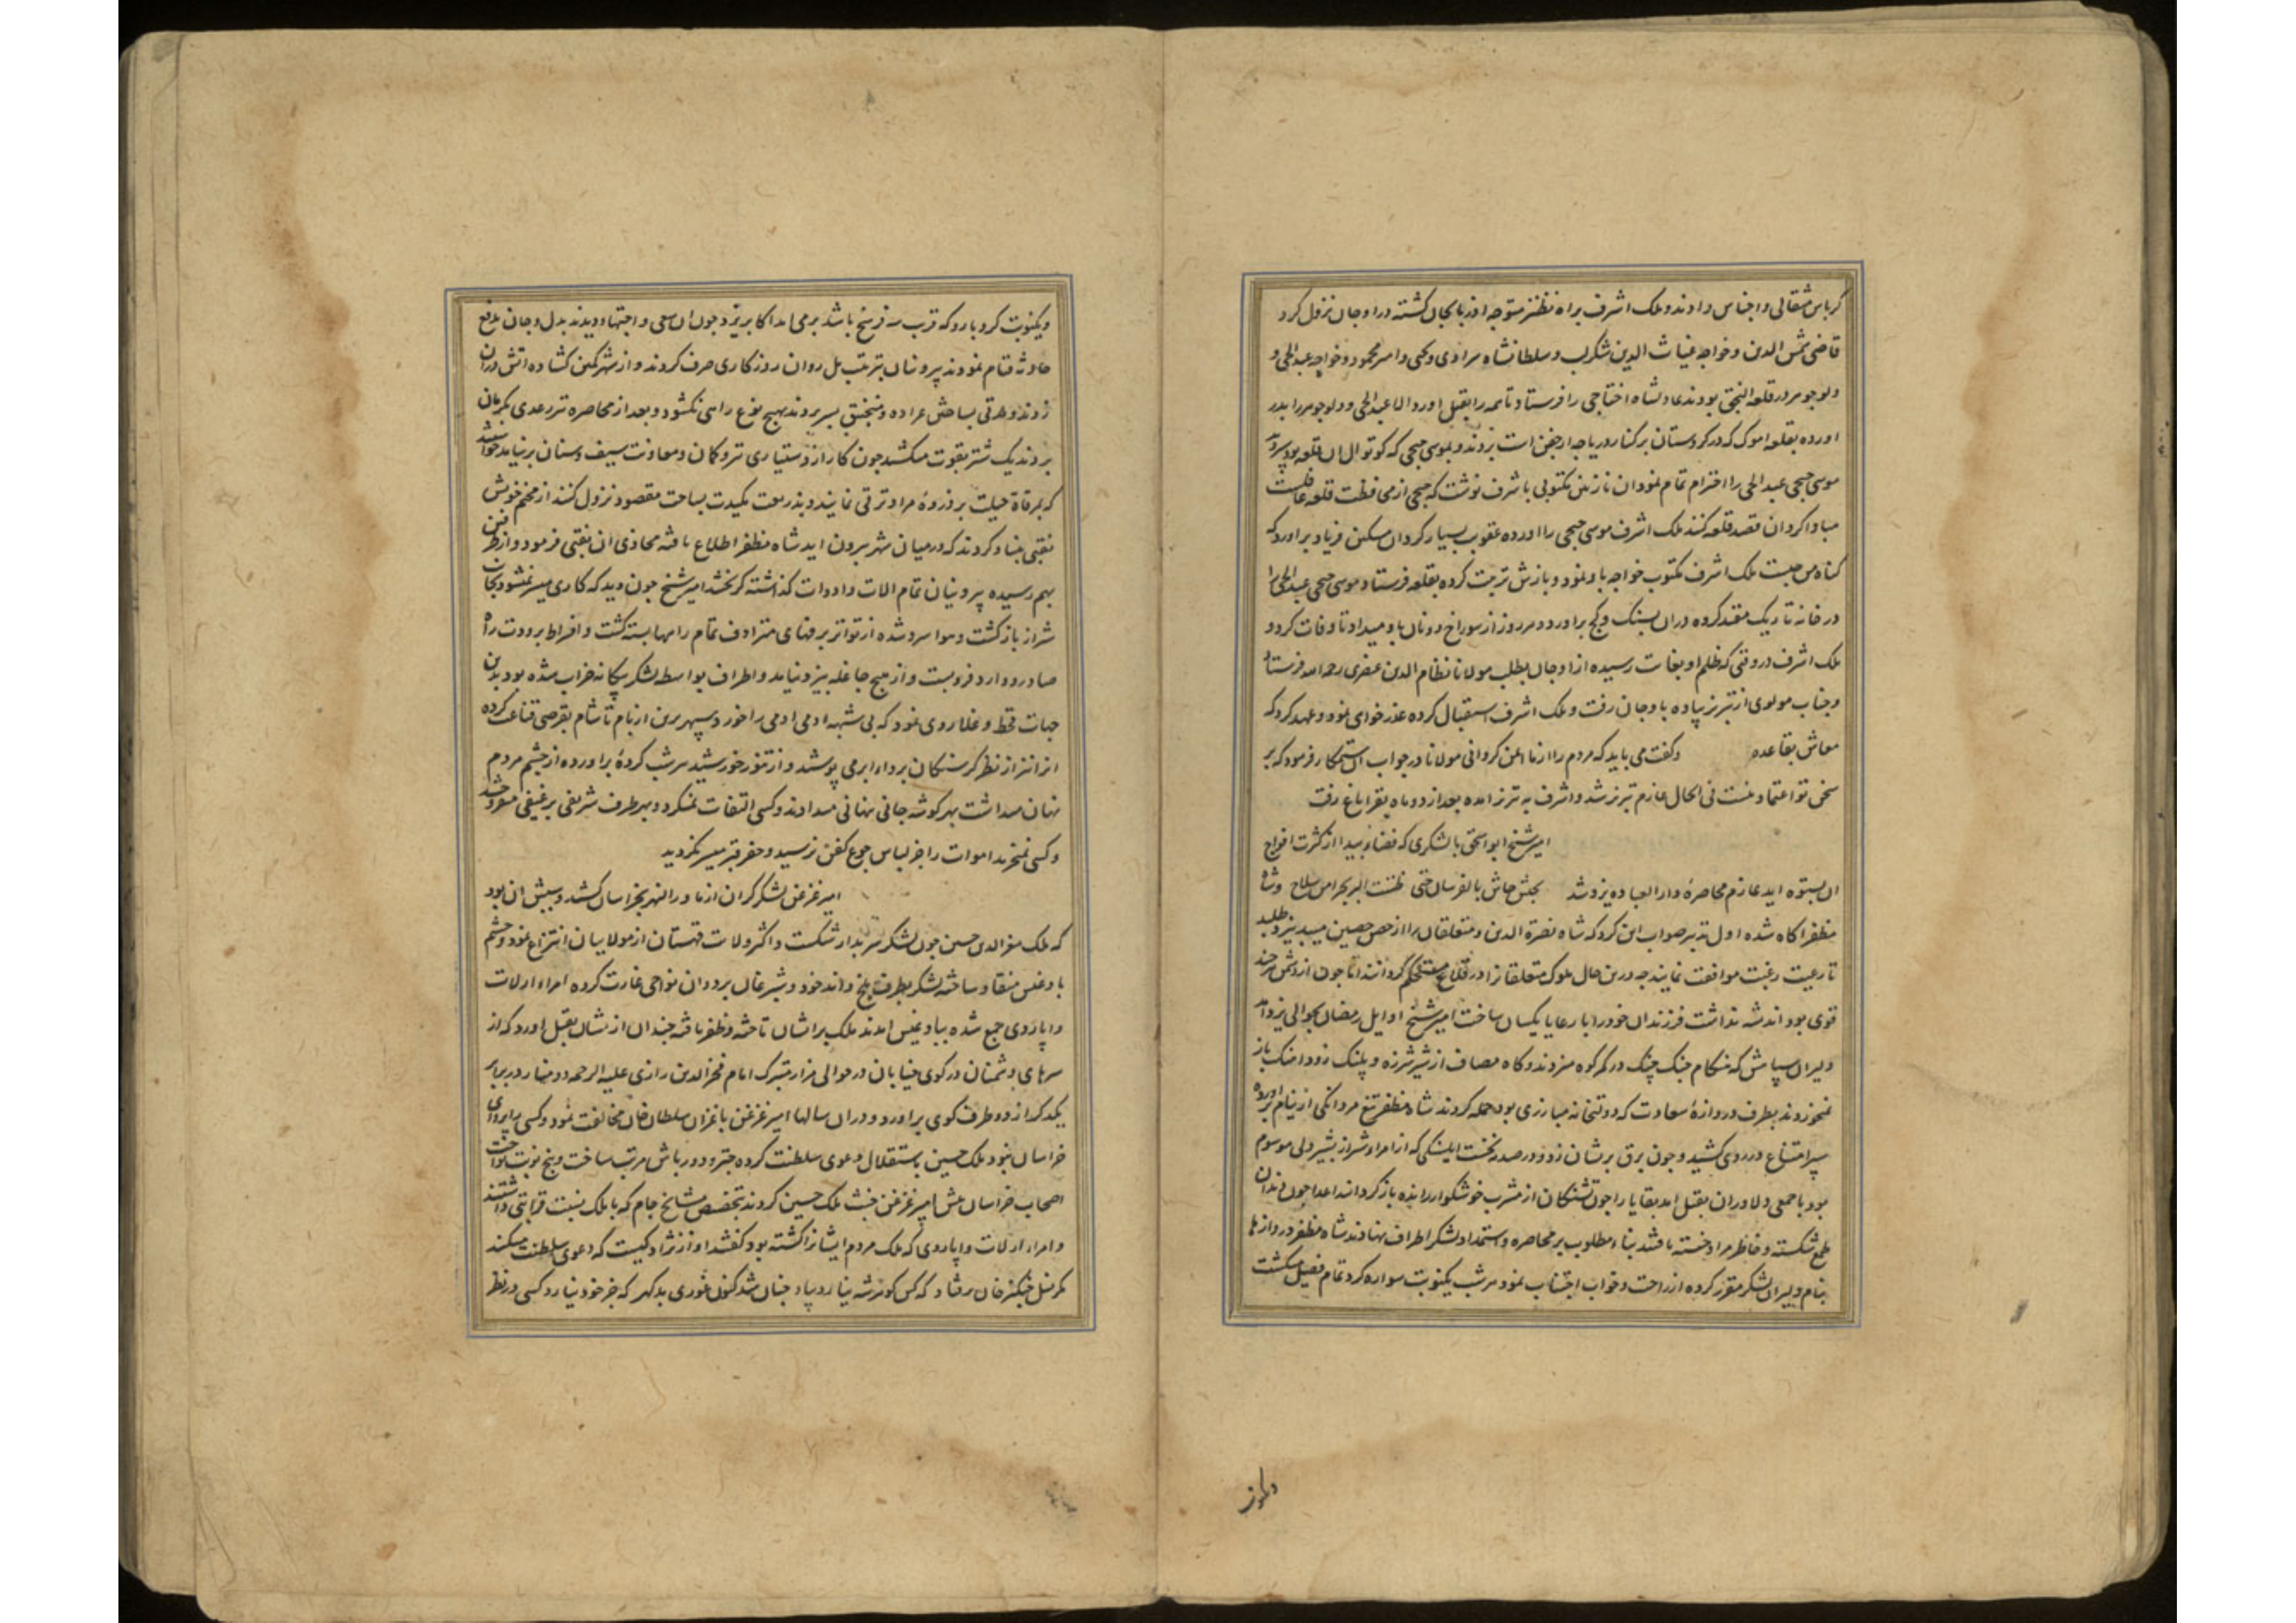 کرباس مثقالی و اجناس دادند و ملک اشرف براه نطنز متوجه اذربایجان کشته در اوجان نزول کرد
قاضی شمس الدین و خواجه غیاث الدین شکرلب و سلطانشاه سراوی و کجی و امیر محمود و خواجه عبد الحی و
ولوجوهر در قلعه النجق بودند عادلشاه اختاجی را فرستاد تا همه را بقتل اورد الا عبد الحی و ولوجوهر را بدر
اورده بقلعه اموک که در کردستان بر کنار دریاچه ارجیش است بردند و بموسی جیجی که کوتوال ان قلعه بود سپردند
موسی جیجی عبد الحی را احترام تمام نمود ان نازنین مکتوبی باشرف نوشت که جیجی از محافظت قلعه غافلست
مبادا کردان قصد قلعه کنند ملک اشرف موسی جیجی را اورده عقوب بسیار کرد ان مسکین فریاد براورد که
کناه من چیست ملک اشرف مکتوب خواجه باو نمود و بازش تربیت کرده بقلعه فرستاد موسی جیجی عبد الحی را
در خانه تاریک مقید کرده در ان بسنک و کج براورد و هر روز از سوراخ دو نان باو میداد تا وفات کرد و
ملک اشرف در وقتی که ظلم او بغایت رسیده از اوجان بطلب مولانا نظام الدین غضری رحمه الله فرستاد
و جناب مولوی از تبریز پیاده باوجان رفت و ملک اشرف استقبال کرده عذر خواهی نمود و عهد کرد که
معاش بقاعده وکفت می باید که مردم را از ما ایمن کردانی مولانا در جواب ان ستمکار فرمود که بر
سخن تو اعتماد نیست فی الحال عازم تبریز شد و اشرف به تبریز امده بعد از دو ماه بقراباغ رفت
امیر شیخ ابو اسحق با لشکری که فضاء بیدا از کثرت افواج
ان بستوه اید عازم محاصره دار العباده یزد شد بجیش جاش بالفرسان حتی ظننت البر بحرا من سلاح و شاه
مظفر اکاه شده اول تدبیر صواب این کرد که شاه نصرة الدین و متعلقان را از حصن حصین میبد بیزد طلبید
تا رعیت رغبت موافقت نمایند چه درین حال ملوک متعلقانرا در قلاع مستحکم کردانند اما چون از دشمن هر چند
قوی بود اندیشه نداشت فرزندان خود را با رعایا یکسان ساخت امیر شیخ اوایل رمضان بحوالی یزد امد
دلیران سپاهش که هنکام جنک چنک در کمر کوه میزدند و کاه مصاف از شیر شرزه و پلنک زود اهنک باز
نمیخوردند بطرف دروازه سعادت که دولتخانه مبارزی بود حمله کردند شاه مظفر تیغ مردانکی از نیام براورده
سپر امتناع در روی کشید و چون برق بریشان زد و در صدمه نخست ایلشکی که از امراء شیراز بشیر دلی موسوم
بود با جمعی دلاوران بقتل امد بقایا را چون تشنکان از مشرب خوشکوار رانده بازکردانید اعدا چون دندان
طمع شکسته و خاطر مراد خسته یافتند بناء مطلوب بر محاصره و استمداد لشکر اطراف نهادند شاه مظفر دروازها
بنام دلیران لشکر مقرر کرده از راحت و خواب اجتناب نمود هر شب یکنوبت سواره کرد تمام فصیل میکشت
ویکنوبت کرد بارو که قرب سه فرسخ باشد برمی امد اکابر یزد چون ان سعی و اجتهاد دیدند بدل و جان بدفع
حادثه قیام نمودند بیرونیان بترتیب پل روان روزکاری صرف کردند و از شهر کمین کشاده اتش دران
زدند و مدتی بساختن عراده و منجنیق بسر بردند بهیچ نوع راهی نکشود و بعد از محاصره تیر رعدی بکرمان
بردند یک شتر بقوت میکشید چون کار از دستیاری تیر و کمان و معاونت سیف و سنان برنیامد خواستند
که بمرقاة حیلت بر ذروهٔ مراد ترقی نمایند و بذریعت مکیدت بساحت مقصود نزول کنند از مخیم خویش
نقبی بنیاد کردند که در میان شهر بیرون اید شاه مظفر اطلاع یافته محاذی ان نقبی فرمود و از طرفین
بهم رسیده بیرونیان تمام الات و ادوات کذاشته کریختند امیر شیخ چون دید که کاری میسر نمیشود بجانب
شیراز بازکشت و هوا سرد شده از تواتر برفهای مترادف تمام راهها بسته کشت و افراط برودت راه
صادر و وارد فروبست و از هیچ جا غله بیزد نیامد و اطراف بواسطه لشکر بیکانه خراب شده بود بدین
جهات قحط و غلا روی نمود که بی شبهه ادمی ادمی را خورد سپهر برین از بام تا شام بقرصی قناعت کرده
انرا نیز از نظر کرسنکان برداء ابر می پوشید و از تنور خورشید هر شب کردهٔ براورده از چشم مردم
نهان میداشت بهر کوشه جانی بنانی میدادند و کسی التفات نمیکرد و بهر طرف شریفی برغیفی میفروختند
وکسی نمیخرید اموات را جز لباس جوع کفن نرسید و حفر قبر میسر نکردید
امیر غزغن لشکر کران از ماورالنهر بخراسان کشید و سببش ان بود
که ملک معز الدین حسین چون لشکر سربدار شکست و اکثر ولایت قهستان از موالیان انتزاع نمود و حشم
بادغیس منقاد ساخته لشکر بطرف بلخ و اندخود و شبرغان برد و ان نواحی غارت کرده امراء ارلات
و اپاردی جمع شده ببادغیس امدند ملک برایشان تاخته و ظفر یافته چندان ازیشان بقتل اورد که از
سرهای دشمنان در کوی خیابان در حوالی مزار متبرک امام فخر الدین رازی علیه الرحمه دو منار در برابر
یکدیکر از دو طرف کوی براورد و دران سالها امیر غزغن با غزان سلطان خان مخالفت نمود و کسی را پروای
خراسان نبود ملک حسین باستقلال دعوی سلطنت کرده چتر و دورباش مرتب ساخت و پنج نوبت نواخت
اصحاب خراسان پیش امیر غزغن خبث ملک حسین کردند بتخصیص مشایخ جام که با ملک نسبت قرابتی داشتند
و امراء ارلات و اپاردی که ملک مردم ایشانرا کشته بود کفتند او از نژاد کیست که دعوی سلطنت میکند
مکر نسل چنکیز خان برفتاد که کس کوهر شه نیارد بیاد چنان شد کنون غوری بدکهر که جز خود نیارد کسی در نظر